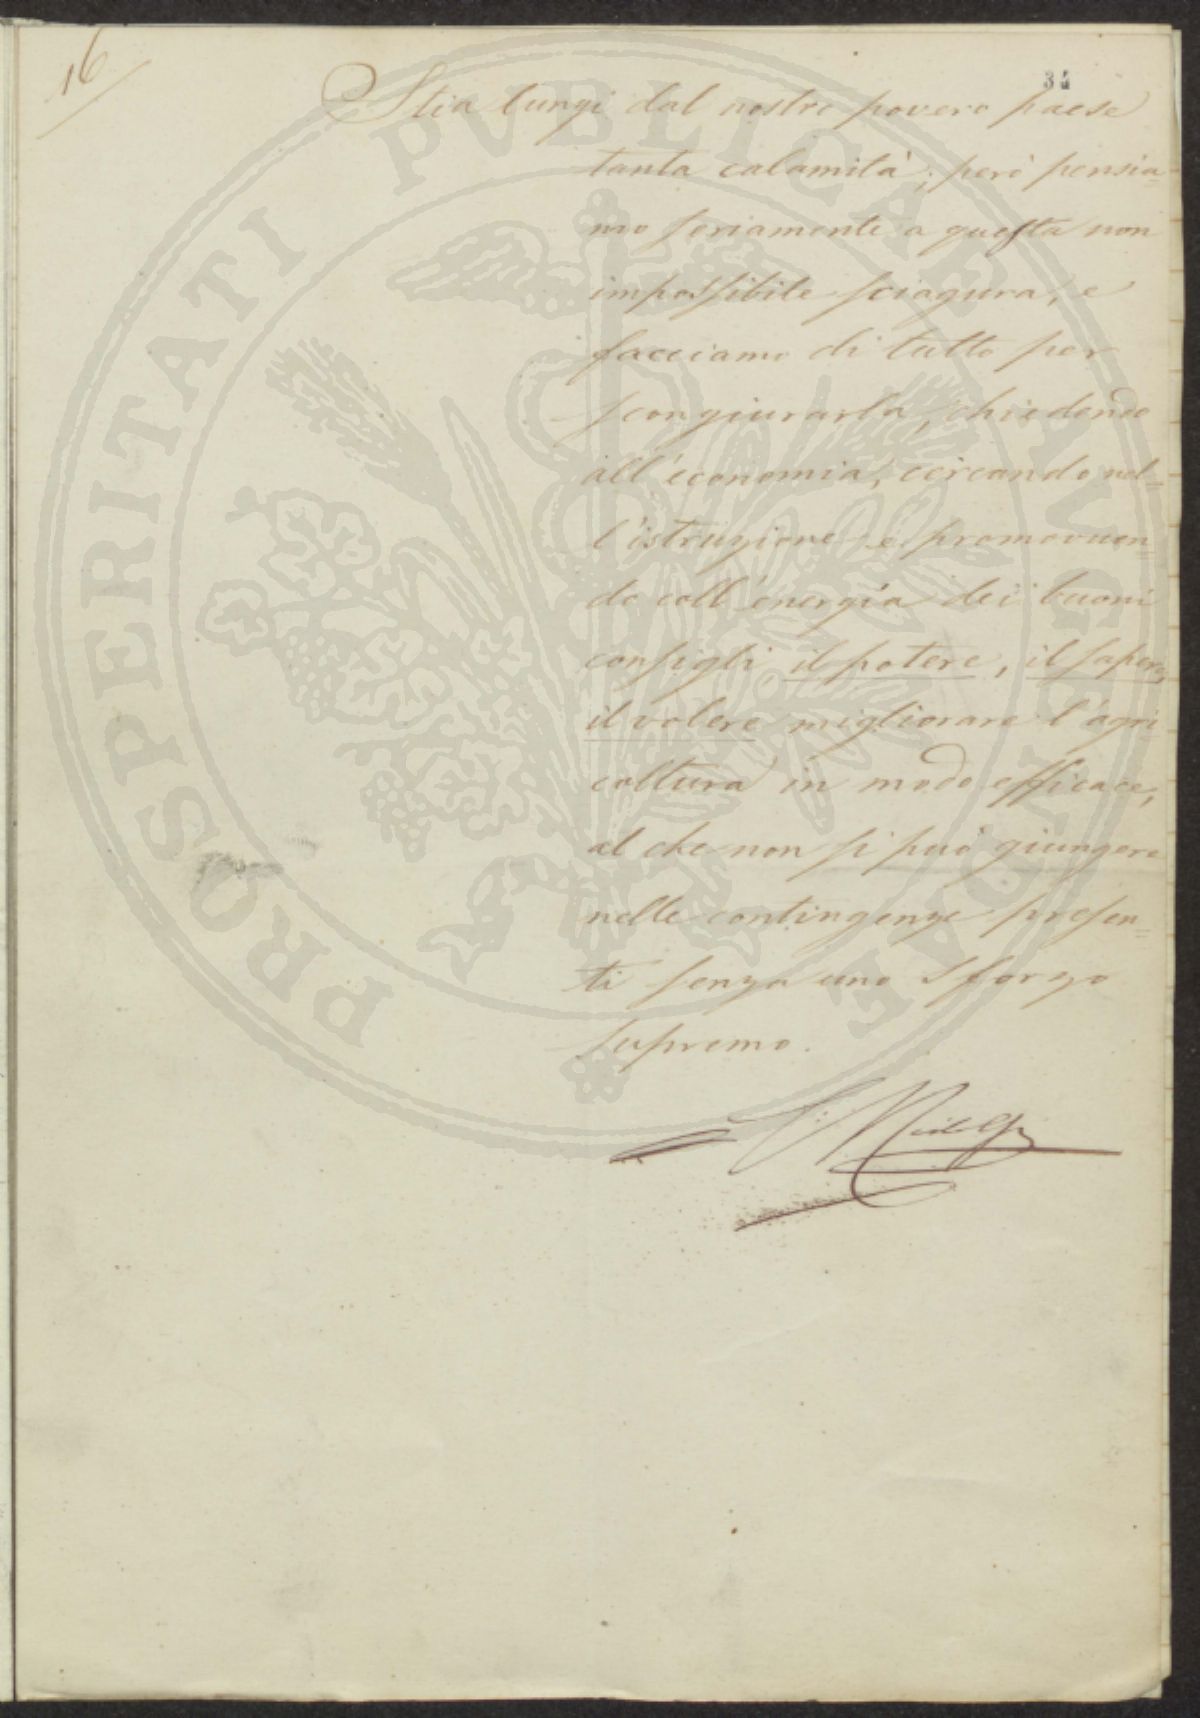 16
34
Stia lungi dal nostro povero paese
tanta calamità; però pensia-
mo seriamente a questa non
impossibile sciagura, e
facciamo di tutto per
scongiurarla, chiedendo
all'economia, cercando nel-
l'istruzione e promovuen=
do coll'energia dei buoni
consigli il potere, il sapere,
il volere migliorare l'agri
coltura in modo efficace,
al che non si può giungere
nelle contingenze presen=
ti senza uno sforzo
supremo.
PROSPERITATI PVBLICAE AVGENDAE